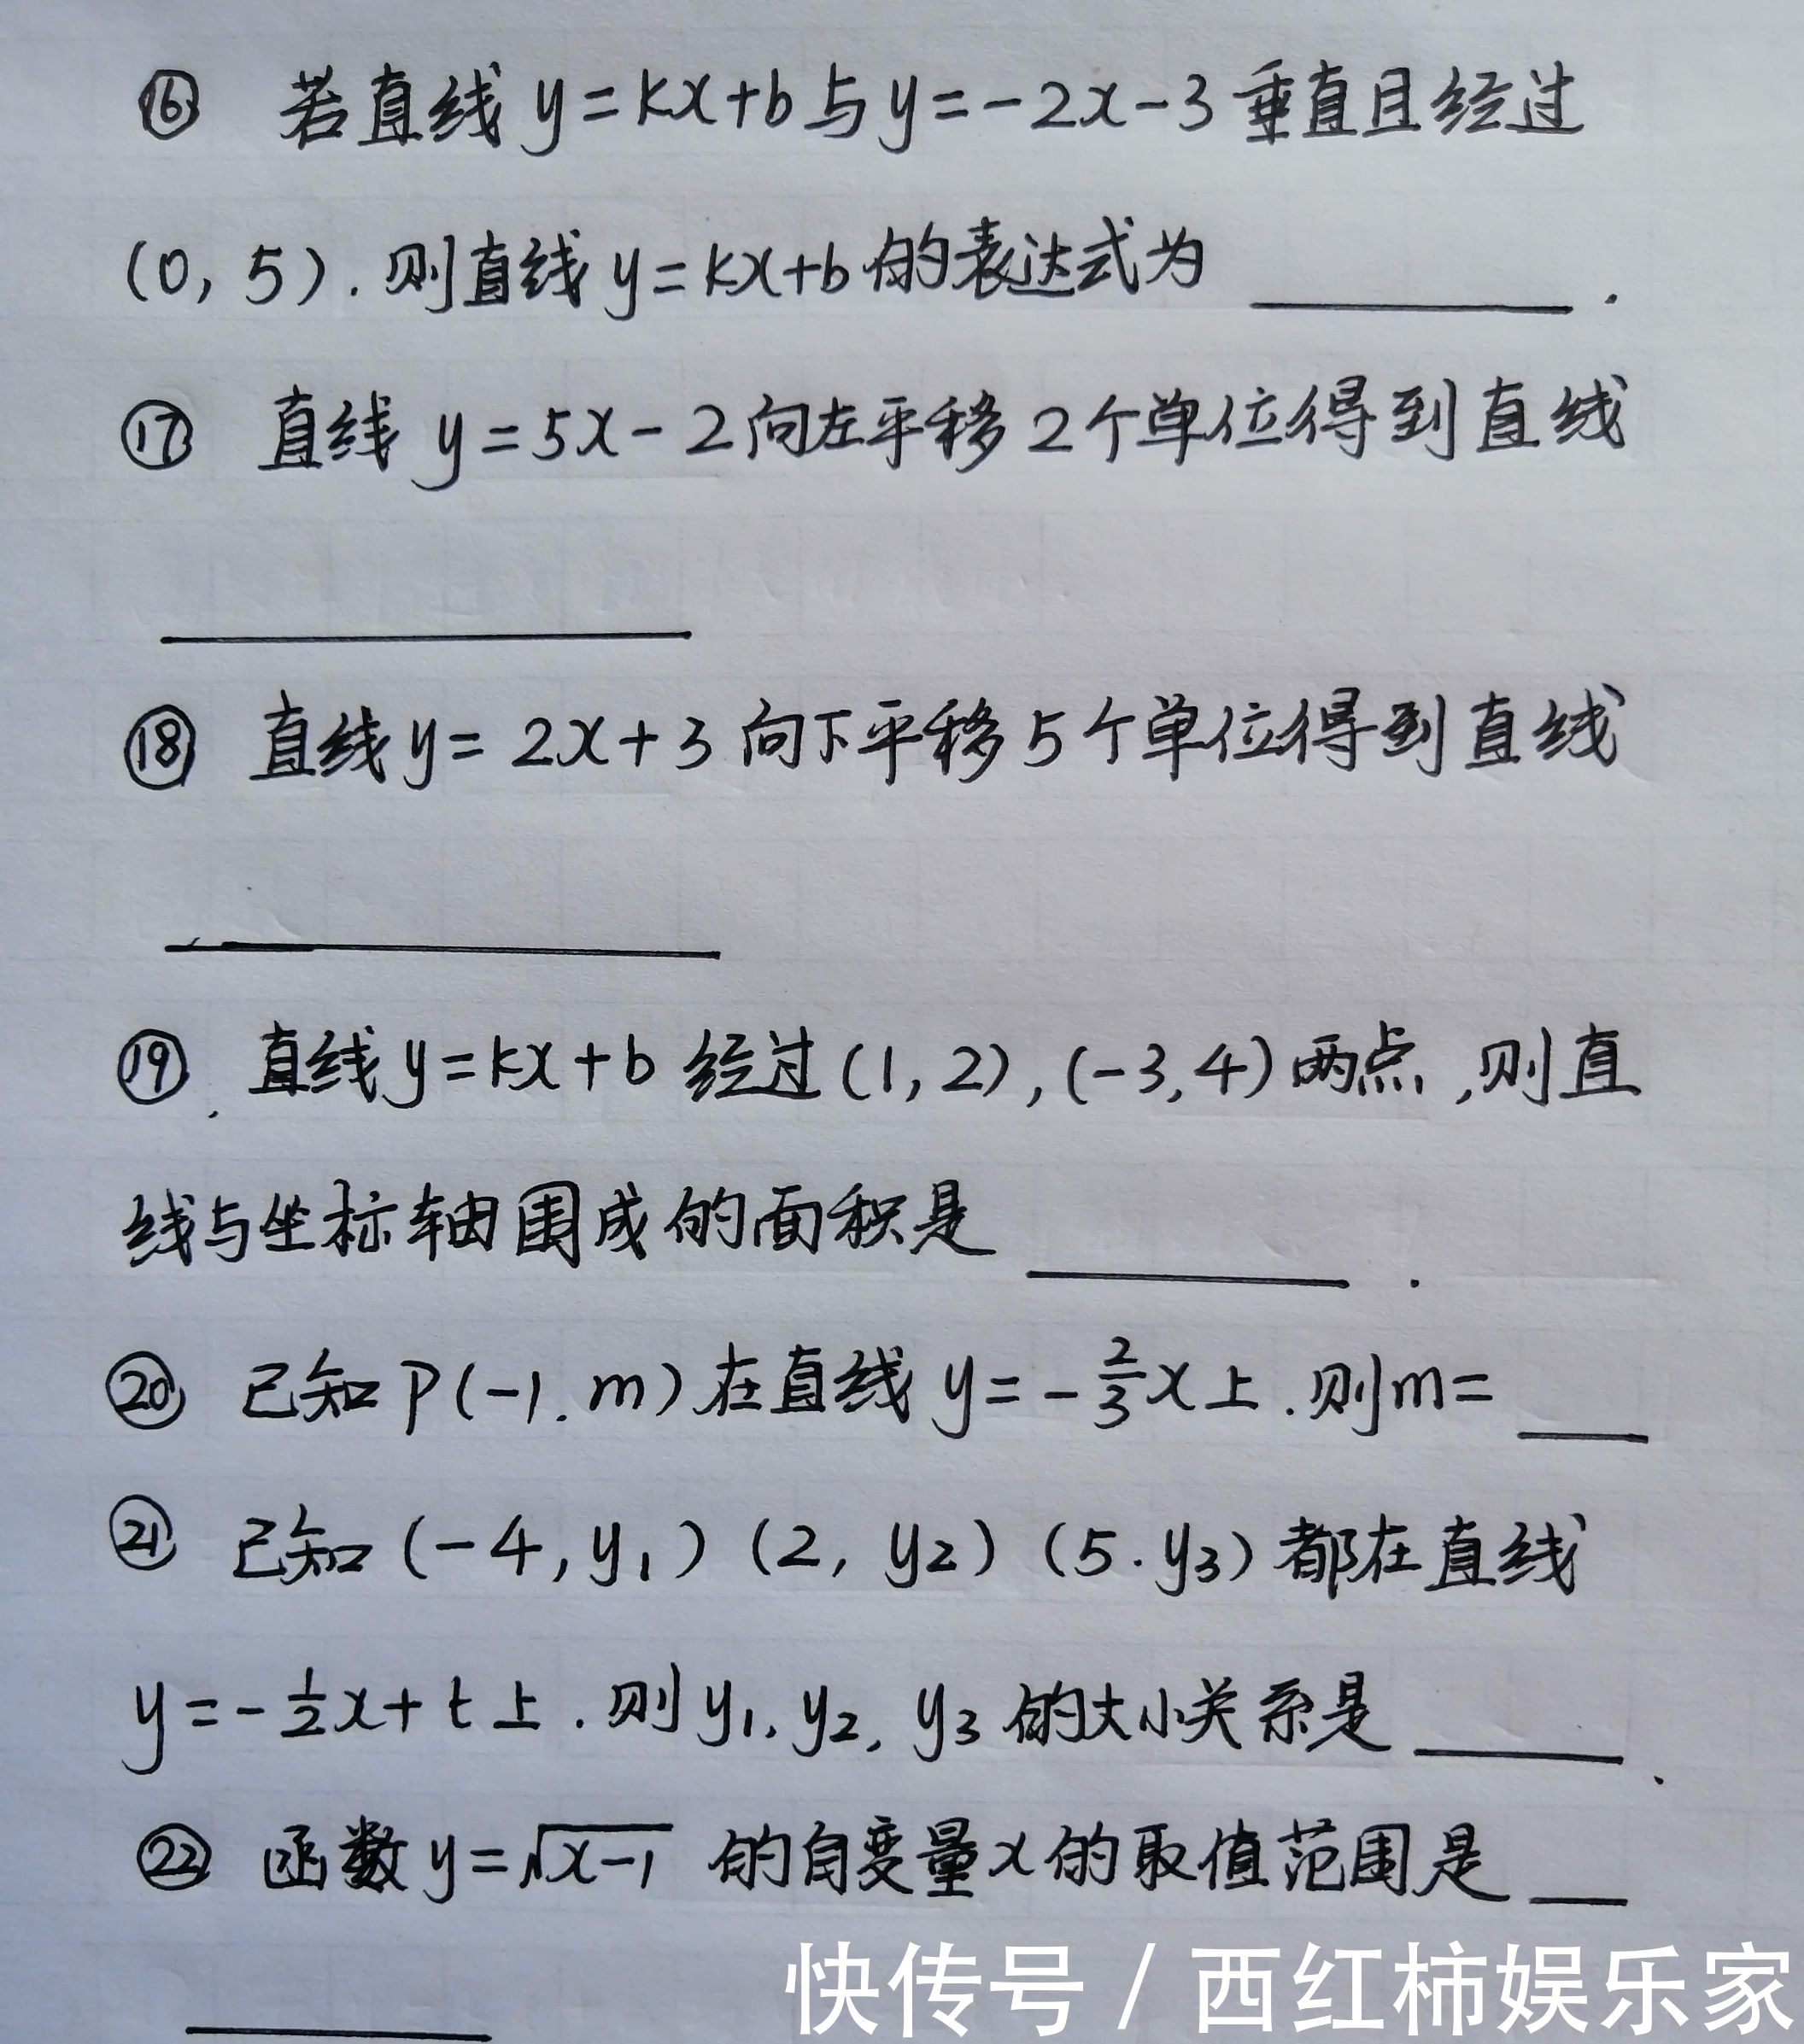 ⑯ 若直线 y=kx+b与y=-2x-3垂直且经过
(0, 5). 则直线 y=kx+b 的表达式为 ______ .
⑰ 直线 y=5x-2向左平移2个单位得到直线
______
⑱ 直线y= 2x+3 向下平移5个单位得到直线
______
⑲. 直线y=kx+b 经过(1,2),(-3,4)两点,则直
线与坐标轴围成的面积是 ______ .
⑳ 已知 P(-1.m)在直线 y=-2/3x上.则m= ___
㉑ 已知(-4,y₁)(2, y₂)(5.y₃)都在直线
y=-1/2x+t上.则y₁,y₂, y₃的大小关系是 ____ .
㉒ 函数y=√(x-1) 的自变量x的取值范围是 __
______
快传号 / 西红柿娱乐家